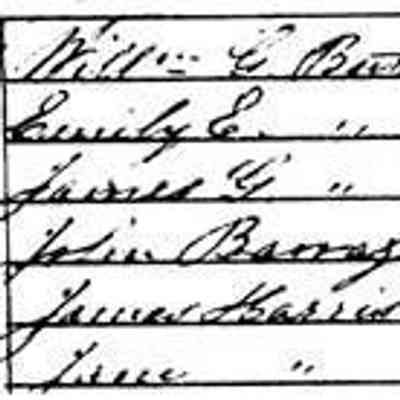 Willm G. Bur
Emily E. "
James G. "
John Barray
James Harris
Jane "